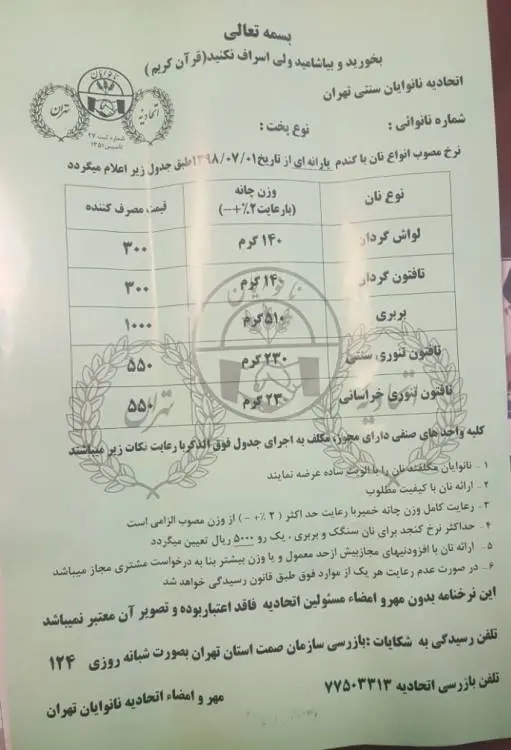 بسمه تعالی
بخورید و بیاشامید ولی اسراف نکنید(قرآن کریم)
اتحادیه نانوایان سنتی تهران
نانوایان
اتحادیه
تهران
شماره ثبت ۲۷
تاسیس ۱۳۵۱
شماره نانوائی : نوع پخت :
نرخ مصوب انواع نان با گندم یارانه ای از تاریخ ۱۳۹۸/۰۷/۰۱ طبق جدول زیر اعلام میگردد
نوع نان وزن چانه (بارعایت ۲٪+-) قیمت مصرف کننده
لواش گردان ۱۴۰ گرم ۳۰۰
تافتون گردان ۱۴۰ گرم ۳۰۰
بربری ۵۱۰ گرم ۱۰۰۰
تافتون تنوری سنتی ۲۳۰ گرم ۵۵۰
تافتون تنوری خراسانی ۲۳۰ گرم ۵۵۰
نانوایان
اتحادیه
تهران
کلیه واحدهای صنفی دارای مجوز، مکلف به اجرای جدول فوق الذکر با رعایت نکات زیر میباشند
۱ - نانوایان مکلفند نان را با الویت ساده عرضه نمایند
۲ - ارائه نان با کیفیت مطلوب
۳ - رعایت کامل وزن چانه خمیر با رعایت حد اکثر (۲٪+ -) از وزن مصوب الزامی است
۴ - حداکثر نرخ کنجد برای نان سنگک و بربری ، یک رو ۵۰۰۰ ریال تعیین میگردد
۵ - ارائه نان با افزودنیهای مجاز بیش از حد معمول و یا وزن بیشتر بنا به درخواست مشتری مجاز میباشد
۶ - در صورت عدم رعایت هر یک از موارد فوق طبق قانون رسیدگی خواهد شد
این نرخنامه بدون مهر و امضاء مسئولین اتحادیه فاقد اعتبار بوده و تصویر آن معتبر نمیباشد
تلفن رسیدگی به شکایات :بازرسی سازمان صمت استان تهران بصورت شبانه روزی ۱۲۴
تلفن بازرسی اتحادیه ۷۷۵۰۳۳۱۳
مهر و امضاء اتحادیه نانوایان تهران